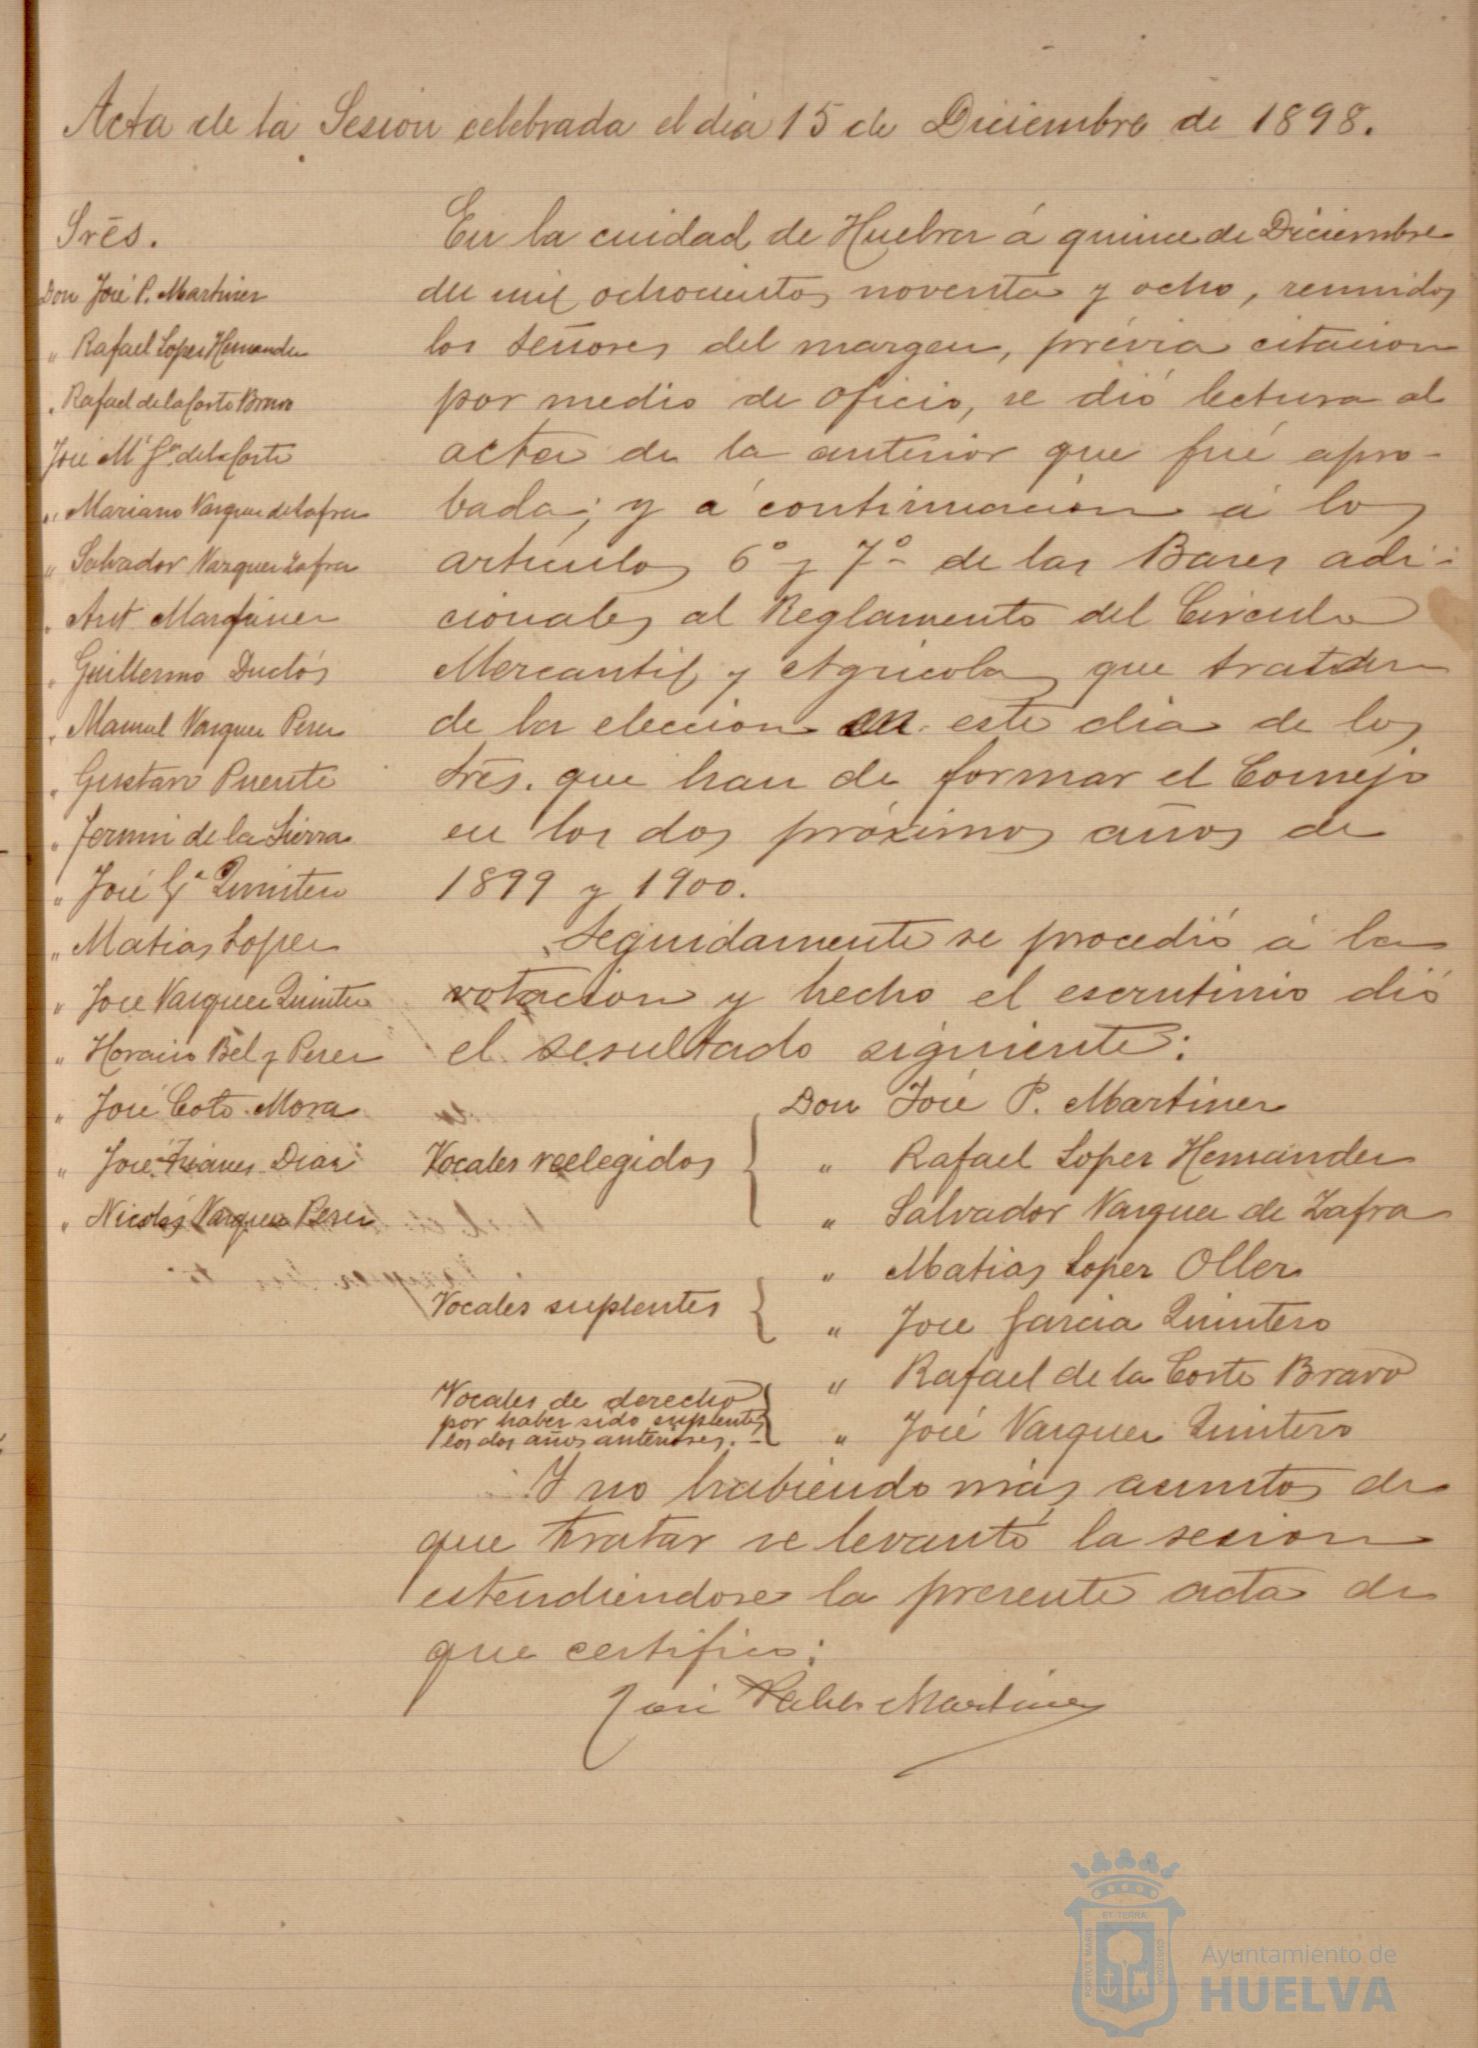 Acta de la Sesion celebrada el dia 15 de Diciembre de 1898.
Srēs.
Don José P. Martinez
" Rafael Lopez Hernandez
" Rafael de la Corte Bravo
José Mª Gª de la Corte
" Mariano Vazquez de Zafra
" Salvador Vazquez Zafra
" Ant. Martinez
" Guillermo Duclós
" Manuel Vazquez Perez
" Gustavo Puente
" Fermin de la Sierra
" José Gª Quintero
" Matias Lopez
" Jose Vazquez Quintero
" Horacio Bel y Perez
" José Coto Mora
" José Diaz
" Nicolás Vazquez Perez
En la cuidad de Huelva á quince de Diciembre
de mil ochocientos noventa y ocho, reunidos
los señores del margen, prévia citacion
por medio de oficio, se dió lectura al
acta de la anterior que fué apro-
bada; y á continuacion á los
artículos 6º y 7º de las Bases adi-
cionales al Reglamento del Circulo
Mercantil y Agricola que tratan
de la eleccion en este dia de los
Srēs. que han de formar el Consejo
en los dos próximos años de
1899 y 1900.
Seguidamente se procedió á la
votacion y hecho el escrutinio dió
el resultado siguiente:
Don José P. Martinez
Vocales reelegidos { " Rafael Lopez Hernandez
" Salvador Vazquez de Zafra
" Matias Lopez Oller
Vocales suplentes { " Jose Garcia Quintero
" Rafael de la Corte Bravo
Vocales de derecho
por haber sido suplentes
los dos años anteriores. { " José Vazquez Quintero
Y no habiendo más asuntos de
que tratar se levantó la sesion
estendiéndose la presente acta de
que certifico:
José Pablo Martinez
PORTUS MARIS ET TERRA CUSTODIA
Ayuntamiento de
HUELVA